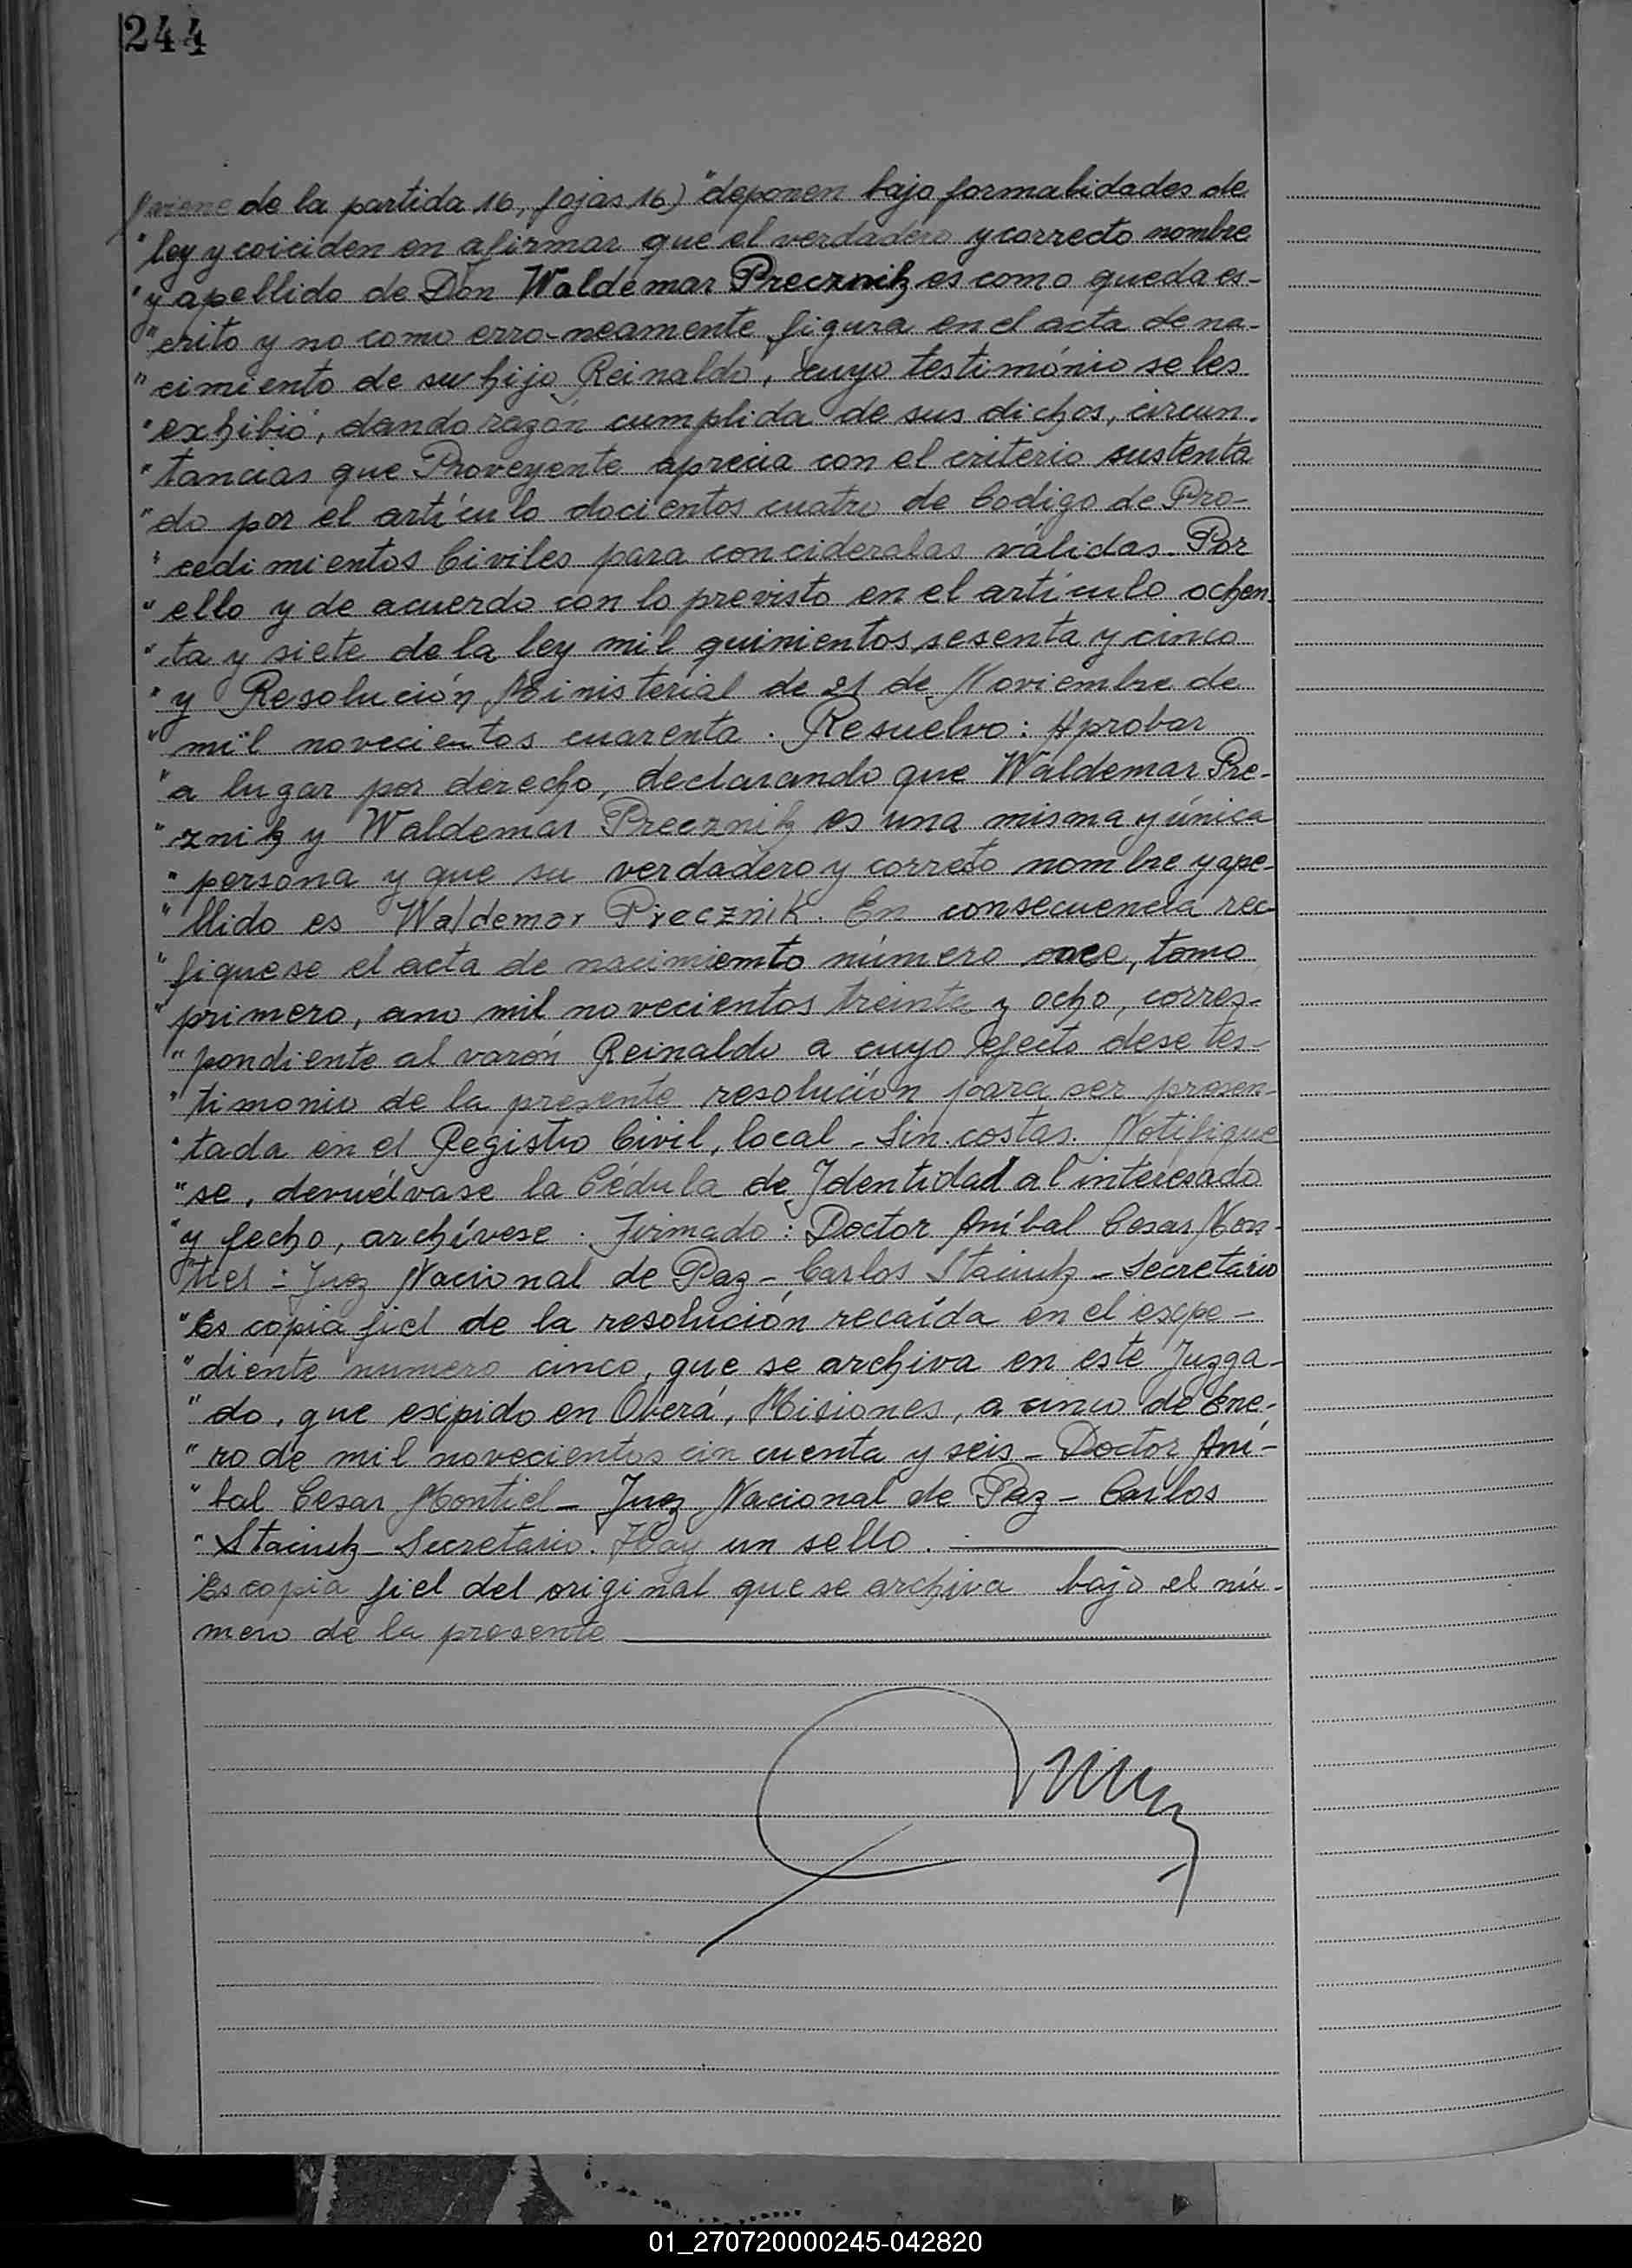 244
viene de la partida 16, fojas 16) "deponen bajo formalidades de
" ley y coiciden en afirmar que el verdadero y correcto nombre
" y apellido de Don Waldemar Precznik es como queda es-
" crito y no como erro-neamente figura en el acta de na-
" cimiento de su hijo Reinaldo, cuyo testimónio se les
" exhibió, dando razón cumplida de sus dichos, circun.
" tancias que Proveyente aprecia con el criterio sustenta
" do por el artículo docientos cuatro de Codigo de Pro-
" cedimientos Civiles para concideralas válidas. Por
" ello y de acuerdo con lo previsto en el artículo ochen
" ta y siete de la ley mil quinientos sesenta y cinco
" y Resolución Ministerial de 21 de Noviembre de
" mil novecientos cuarenta. Resuelvo: Aprobar
" a lugar por derecho, declarando que Waldemar Pre-
" znik y Waldemar Precznik es una misma y única
" persona y que su verdadero y correcto nombre y ape-
" llido es Waldemar Precznik. En consecuencia rec
" fiquese el acta de nacimiemto número once, tomo
" primero, ano mil novecientos treinta y ocho, corres-
" pondiente al varón Reinaldo a cuyo efecto dese tes-
" timonio de la presente resolución para ser presen-
" tada en el Registro Civil, local - Sin costas. Notifique
" se, devuélvase la Cédula de Identidad al interesado
" y fecho, archívese. Firmado: Doctor Aníbal Cesar Mon-
" tiel - Juez Nacional de Paz - Carlos - Secretario
" Es copia fiel de la resolución recaída en el expe-
" diente numero cinco, que se archiva en este Juzga-
" do, que expido en Oberá, Misiones, a cinco de Ene-
" ro de mil novecientos cincuenta y seis - Doctor Aní-
" bal Cesar Montiel - Juez Nacional de Paz - Carlos
" Secretario. Hay un sello.
Es copia fiel del original que se archiva bajo el nú-
mero de la presente
01_270720000245-042820